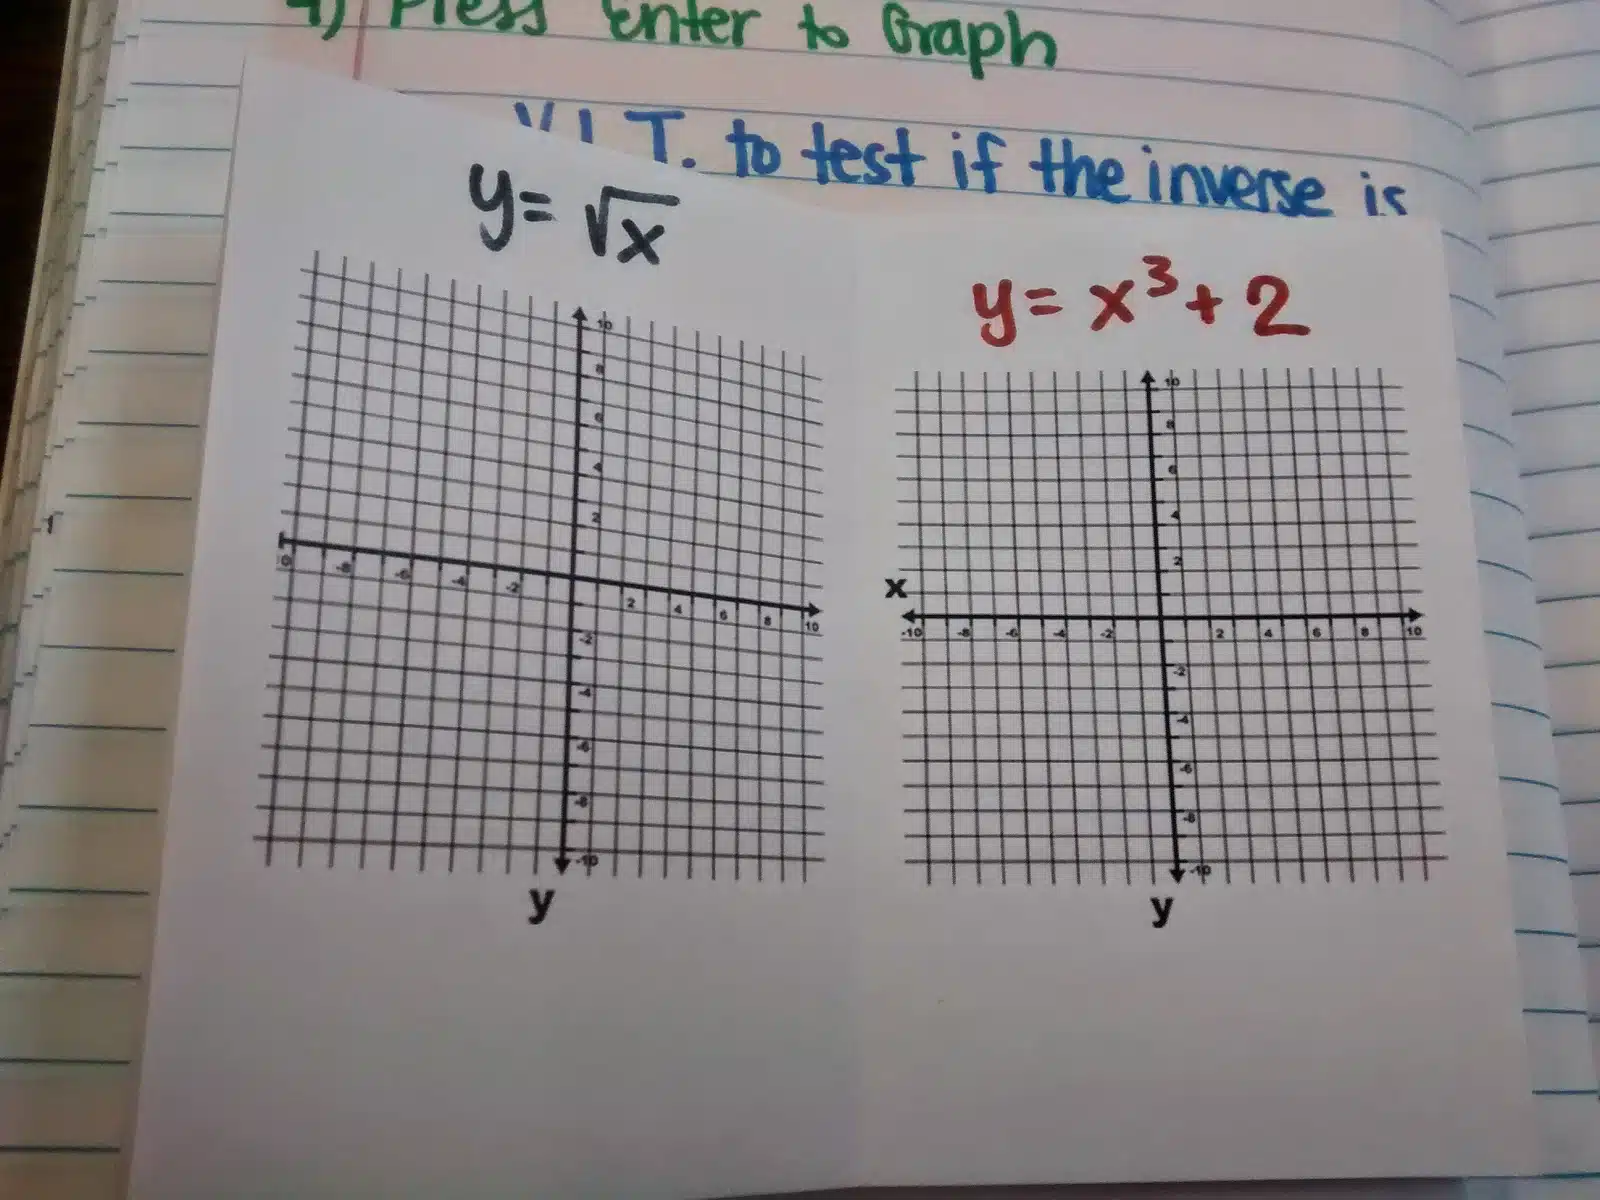 4) Press Enter to Graph
V.L.T. to test if the inverse is
y = √x
10
8
6
4
2
-8 -6 -4 -2 2 4 6 8 10
-2
-4
-6
-8
-10
y
y = x³ + 2
10
8
6
4
2
x
-10 -8 -6 -4 -2 2 4 6 8 10
-2
-4
-6
-8
-10
y